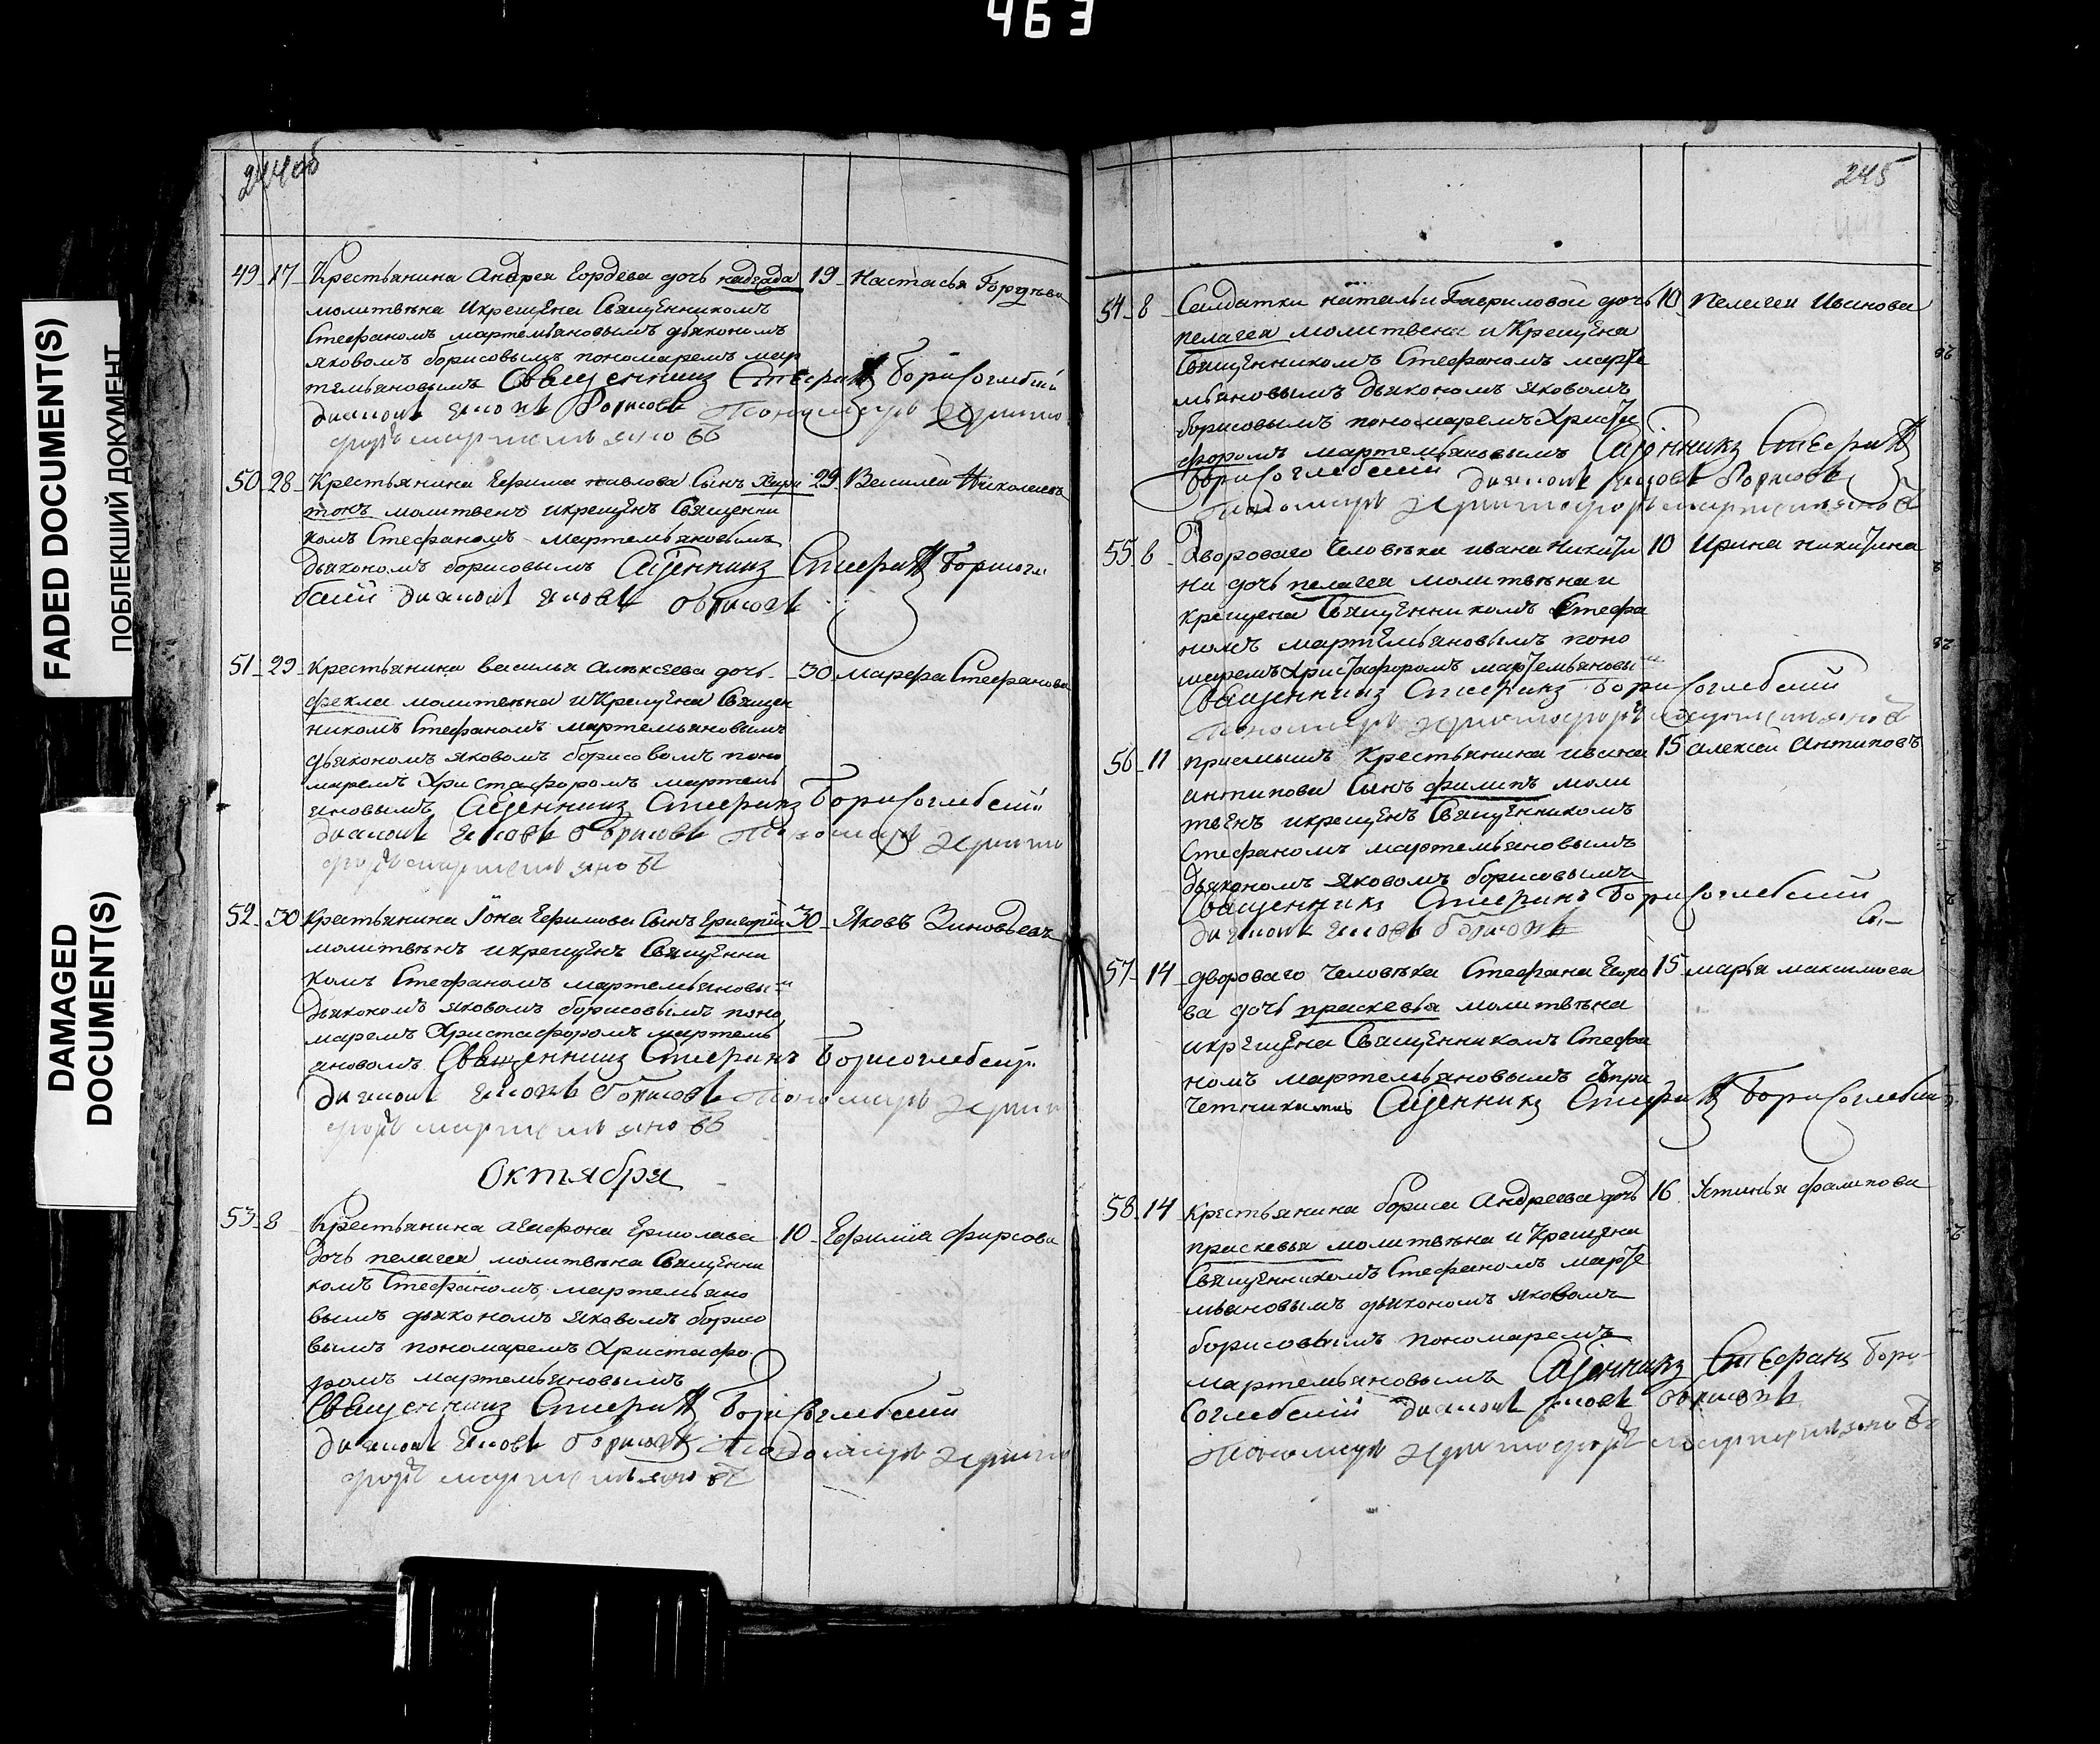 463
FADED DOCUMENT(S)
ПОБЛЕКШИЙ ДОКУМЕНТ
DAMAGED
DOCUMENT(S)
244об
49 17 Крестьянина Андрея Гордева дочь надежда 19 Настасья Гордѣева
молитвена икрещена Священникомъ
Стефаномъ мартемьяновымъ дьякономъ
яковомъ борисовымъ пономаремъ мар
темьяновымъ Священникъ Стефанъ борисоглебский
диаконъ яковъ борисовъ Пономарь Христо
форъ мартемьяновъ
50 28 Крестьянина Ефима павлова Сынъ Хари 29 Василей Николаевъ
тонъ молитвенъ икрещенъ Священни
комъ Стефаномъ мартемьяновымъ
дьякономъ борисовымъ Сщенникъ Стефанъ борисогле
бский диаконъ яковъ борисовъ
51 29 Крестьянина василья Алексеева дочь 30 марфа Стефанова
фекла молитвена икрещена Священ
никомъ Стефаномъ мартемьяновымъ
дьякономъ яковомъ борисовомъ поно
маремъ Христафоромъ мартемь
яновымъ Сщенникъ Стефанъ борисоглебский
диаконъ яковъ борисовъ Пономарь Христо
форъ мартемьяновъ
52 30 Крестьянина Іона Ефимова Сынъ Григорий 30 Яковъ Зиновьевъ
молитвѣнъ икрещенъ Священни
комъ Стефаномъ мартемьяновы
дьякономъ яковомъ борисовымъ поно
маремъ Христафоромъ мартемь
яновомъ Священникъ Стефанъ борисоглебский
диаконъ яковъ борисовъ Пономарь Христо
форъ мартемьяновъ
Октября
53 8 Крестьянина Ермолава 10 Ефимия фирсова
дочь пелагея молитвѣна Священни
комъ Стефаномъ мартемьяно
вымъ дьякономъ яковомъ борисо
вымъ пономаремъ Христафо
ромъ мартемьяновымъ
Священникъ Стефанъ борисоглебский
диаконъ яковъ борисовъ Пономарь Христо
форъ мартемьяновъ
245
54 8 Салдатки натальи Гавриловой дочь 10 пелагея Иванова
пелагея молитвена и Крещена
Священникомъ Стефаномъ марте
мьяновымъ дьякономъ яковомъ
борисовымъ пономаремъ Христа
форомъ мартемьяновымъ Сщенникъ Стефанъ
борисоглебский диаконъ яковъ борисовъ
Пономарь Христофоръ мартемьяновъ
55 6 Двороваго Человѣка ивана Никити 10 Ирина никитина
на дочь пелагея молитвѣна и
крещена Священникомъ Стефа
номъ мартемьяновымъ поно
маремъ Христафоромъ мартемьяновы
Священникъ Стефанъ борисоглебский
Пономарь Христофоръ мартемьяновъ
56 11 приемышъ Крестьянина ивана 15 алексей Антиповъ
антипова Сынъ филипъ моли
твенъ икрещенъ Священникомъ
Стефаномъ мартемьяновымъ
дьякономъ яковомъ борисовымъ
Священникъ Стефанъ борисоглебский
диаконъ яковъ борисовъ
57 14 двороваго человѣка Стефана Егоро 15 марья максимова
ва дочь прасковья молитвѣна
икрещена Священникомъ Стефа
номъ мартемьяновымъ
четниками Сщенникъ Стефанъ борисоглебский
58 14 Крестьянина бориса Андреева дочь 16 Устинья филипова
прасковья молитвѣна и Крещена
Священникомъ Стефаномъ марте
мьяновымъ дьякономъ яковомъ
борисовымъ пономаремъ
мартемьяновымъ Сщенникъ Стефанъ бори
соглебский диаконъ яковъ борисовъ
Пономарь Христофоръ мартемьяновъ